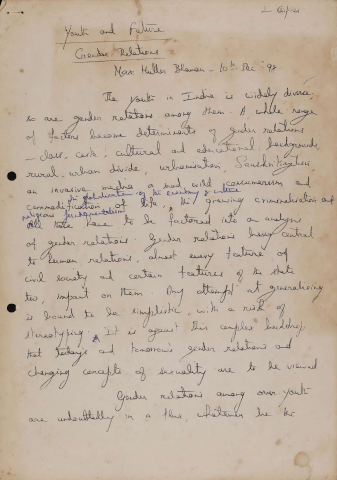 2 copies
Youth and Future
Gender Relations
Max Muller Bhavan - 10th Dec '92
The youth in India is widely diverse,
so are gender relations among them. A whole range
of factors become determinants of gender relations
- class, caste, cultural and educational backgrounds
rural-urban divide, urbanisation, Sanskritization
an invasive media, a mad wild consumerism and
the globalisation of the economy & culture
commodification of life, growing criminalisation and
religious fundamentalism
All these have to be factored into an analysis
of gender relations. Gender relations being central
to human relations, almost every feature of
civil society and certain features of the state
too, impact on them. Any attempt at generalising
is bound to be simplistic, with a risk of
stereotyping. It is against this complex building
that today's and tomorrow's gender relations and
changing concepts of sexuality are to be viewed
Gender relations among our youth
are undoubtedly in a flux, whatever be the